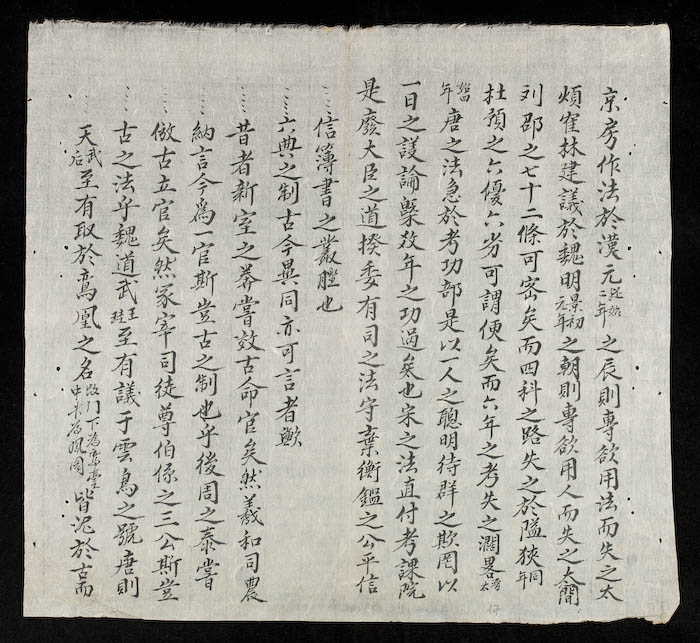 京房作法於漢元二年之辰則專欲用法而失之太
煩崔林建議於魏明景初元年之朝則專欲用人而失之太簡
刘邵之七十二條可密矣而四科之路失之於隘狹同年
杜預之六優六劣可謂便矣而六年之考失之濶畧
年唐之法急於考功部是以一人之聰明待群之欺罔以
一日之議論槩数年之功過矣也宋之法直付考課院
是廢大臣之道揆委有司之法守棄衡鑑之公平信
信簿書之叢脞也
六典之制古今異同亦可言者歟
昔者新室之莽嘗效古命官矣然羲和司農
納言今爲一官斯豈古之制也乎後周之泰嘗
倣古立官矣然冢宰司徒尊伯係之三公斯豈
古之法乎魏道武王珪至有議于雲鳥之號唐則
天武后至有取於鸞凰之名改門下为鸞臺中書为鳳閣皆泥於古而